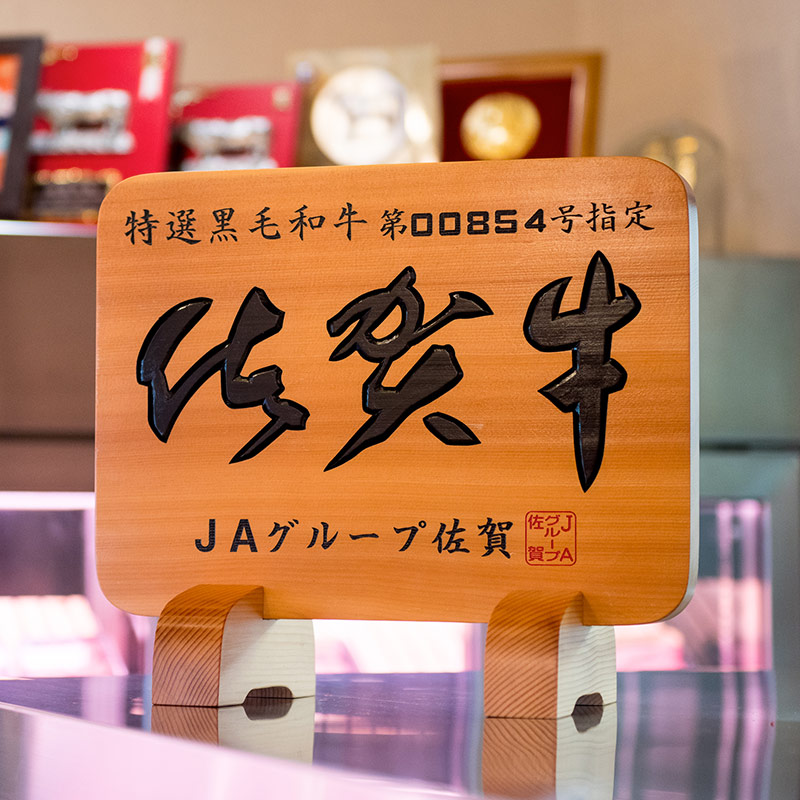 特選黒毛和牛 第00854号指定
佐賀牛
JAグループ佐賀
JA
グループ
佐賀